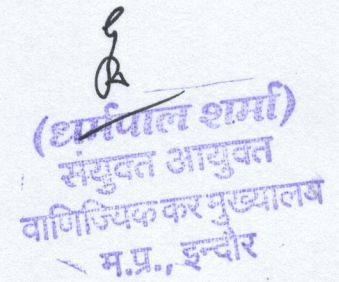 (धर्मपाल शर्मा)
संयुक्त आयुक्त
वाणिज्यिक कर मुख्यालय
म.प्र., इन्दौर